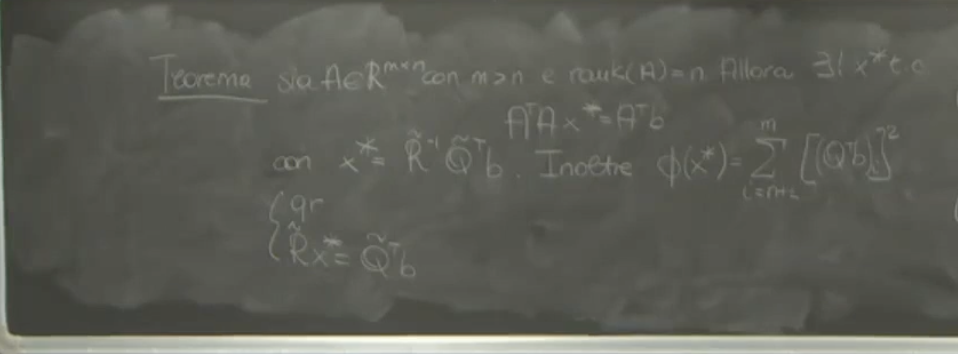 Teorema sia A∈R^{m×n} con m>n e rank(A)=n Allora ∃! x* t.c.
AᵀA x* = Aᵀb
con x* = R̃⁻¹ Q̃ᵀb. Inoltre ϕ(x*) = ∑_{i=n+1}^{m} [(Qᵀb)ᵢ]²
{ qr
R̃x* = Q̃ᵀb